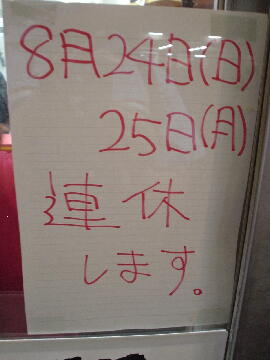 8月24日(日)
25日(月)
連休
します。